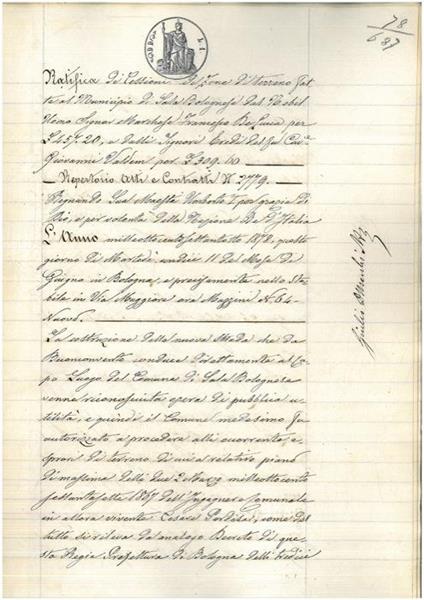 78
687
Ratifica di Cessione di zone di terreno fat-
te al Municipio di Sala Bolognese dal Nobil
Uomo Signor Marchese Francesco De Luca per
L. 457.20, e dalli Signori Eredi del fu Cavre
Giovanni Valdem per L. 309.60
Repertorio Atti e Contratti N. 3779.
Regnando Sua Maestà Umberto I. per grazia di
Dio, e per volontà della Nazione Re d'Italia
L'Anno milleottocentosettantotto 1878, questo
giorno di Martedì undici 11 del Mese di
Giugno in Bologna, e precisamente nello Sta-
bile in Via Maggiore ora Mazzini N. 64
Nuovo.
La costruzione della nuova strada che da
Buonconvento conduce direttamente al Ca-
po Luogo del Comune di Sala Bolognese
venne riconosciuta opera di pubblica u-
tilità, e quindi il Comune medesimo fu
autorizzato a procedere alle occorrenti e-
spropri di terreno di cui a relativo piano
di massima delli due 2 Marzo milleottocento
sessantasette 1867 dell'Ingegnere Comunale
in allora vivente Cesare, come dal
tutto si rileva da analogo Decreto di que-
sta Regia Prefettura di Bologna delli tredici